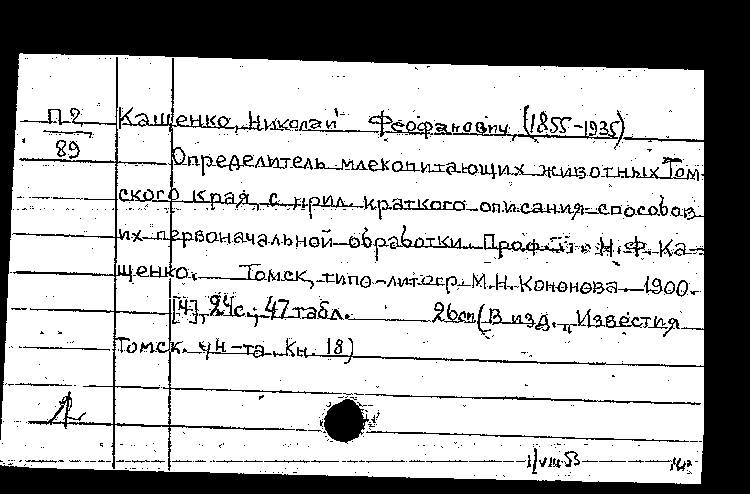 П2 Кащенко, Николай Феофанович, (1855-1935)
89 Определитель млекопитающих животных Том-
ского края, с прил. краткого описания способов
их первоначальной обработки. Проф. Н. Ф. Ка-
щенко. Томск, типо-литогр. М.Н. Кононова. 1900.
[4], 24с.; 47 табл. 26см (В изд. „Известия
Томск. ун-та. Кн. 18)
1/VIII 53